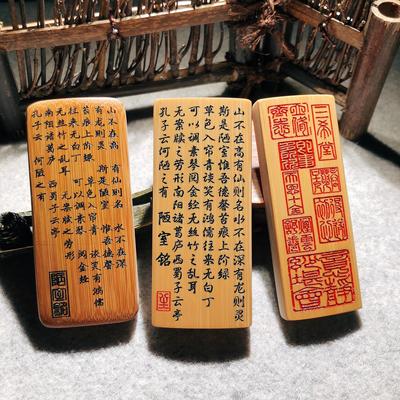 山不在高 有仙则名 水不在深
有龙则灵 斯是陋室 惟吾德馨
苔痕上阶绿 草色入帘青 谈笑有鸿儒
往来无白丁 可以调素琴 阅金经
无丝竹之乱耳 无案牍之劳形
南阳诸葛庐 西蜀子云亭
孔子云 何陋之有
山不在高有仙则名水不在深有龙则灵
斯是陋室惟吾德馨苔痕上阶绿
草色入帘青谈笑有鸿儒往来无白丁
可以调素琴阅金经无丝竹之乱耳
无案牍之劳形南阳诸葛庐西蜀子云亭
孔子云何陋之有 陋室铭
三希堂